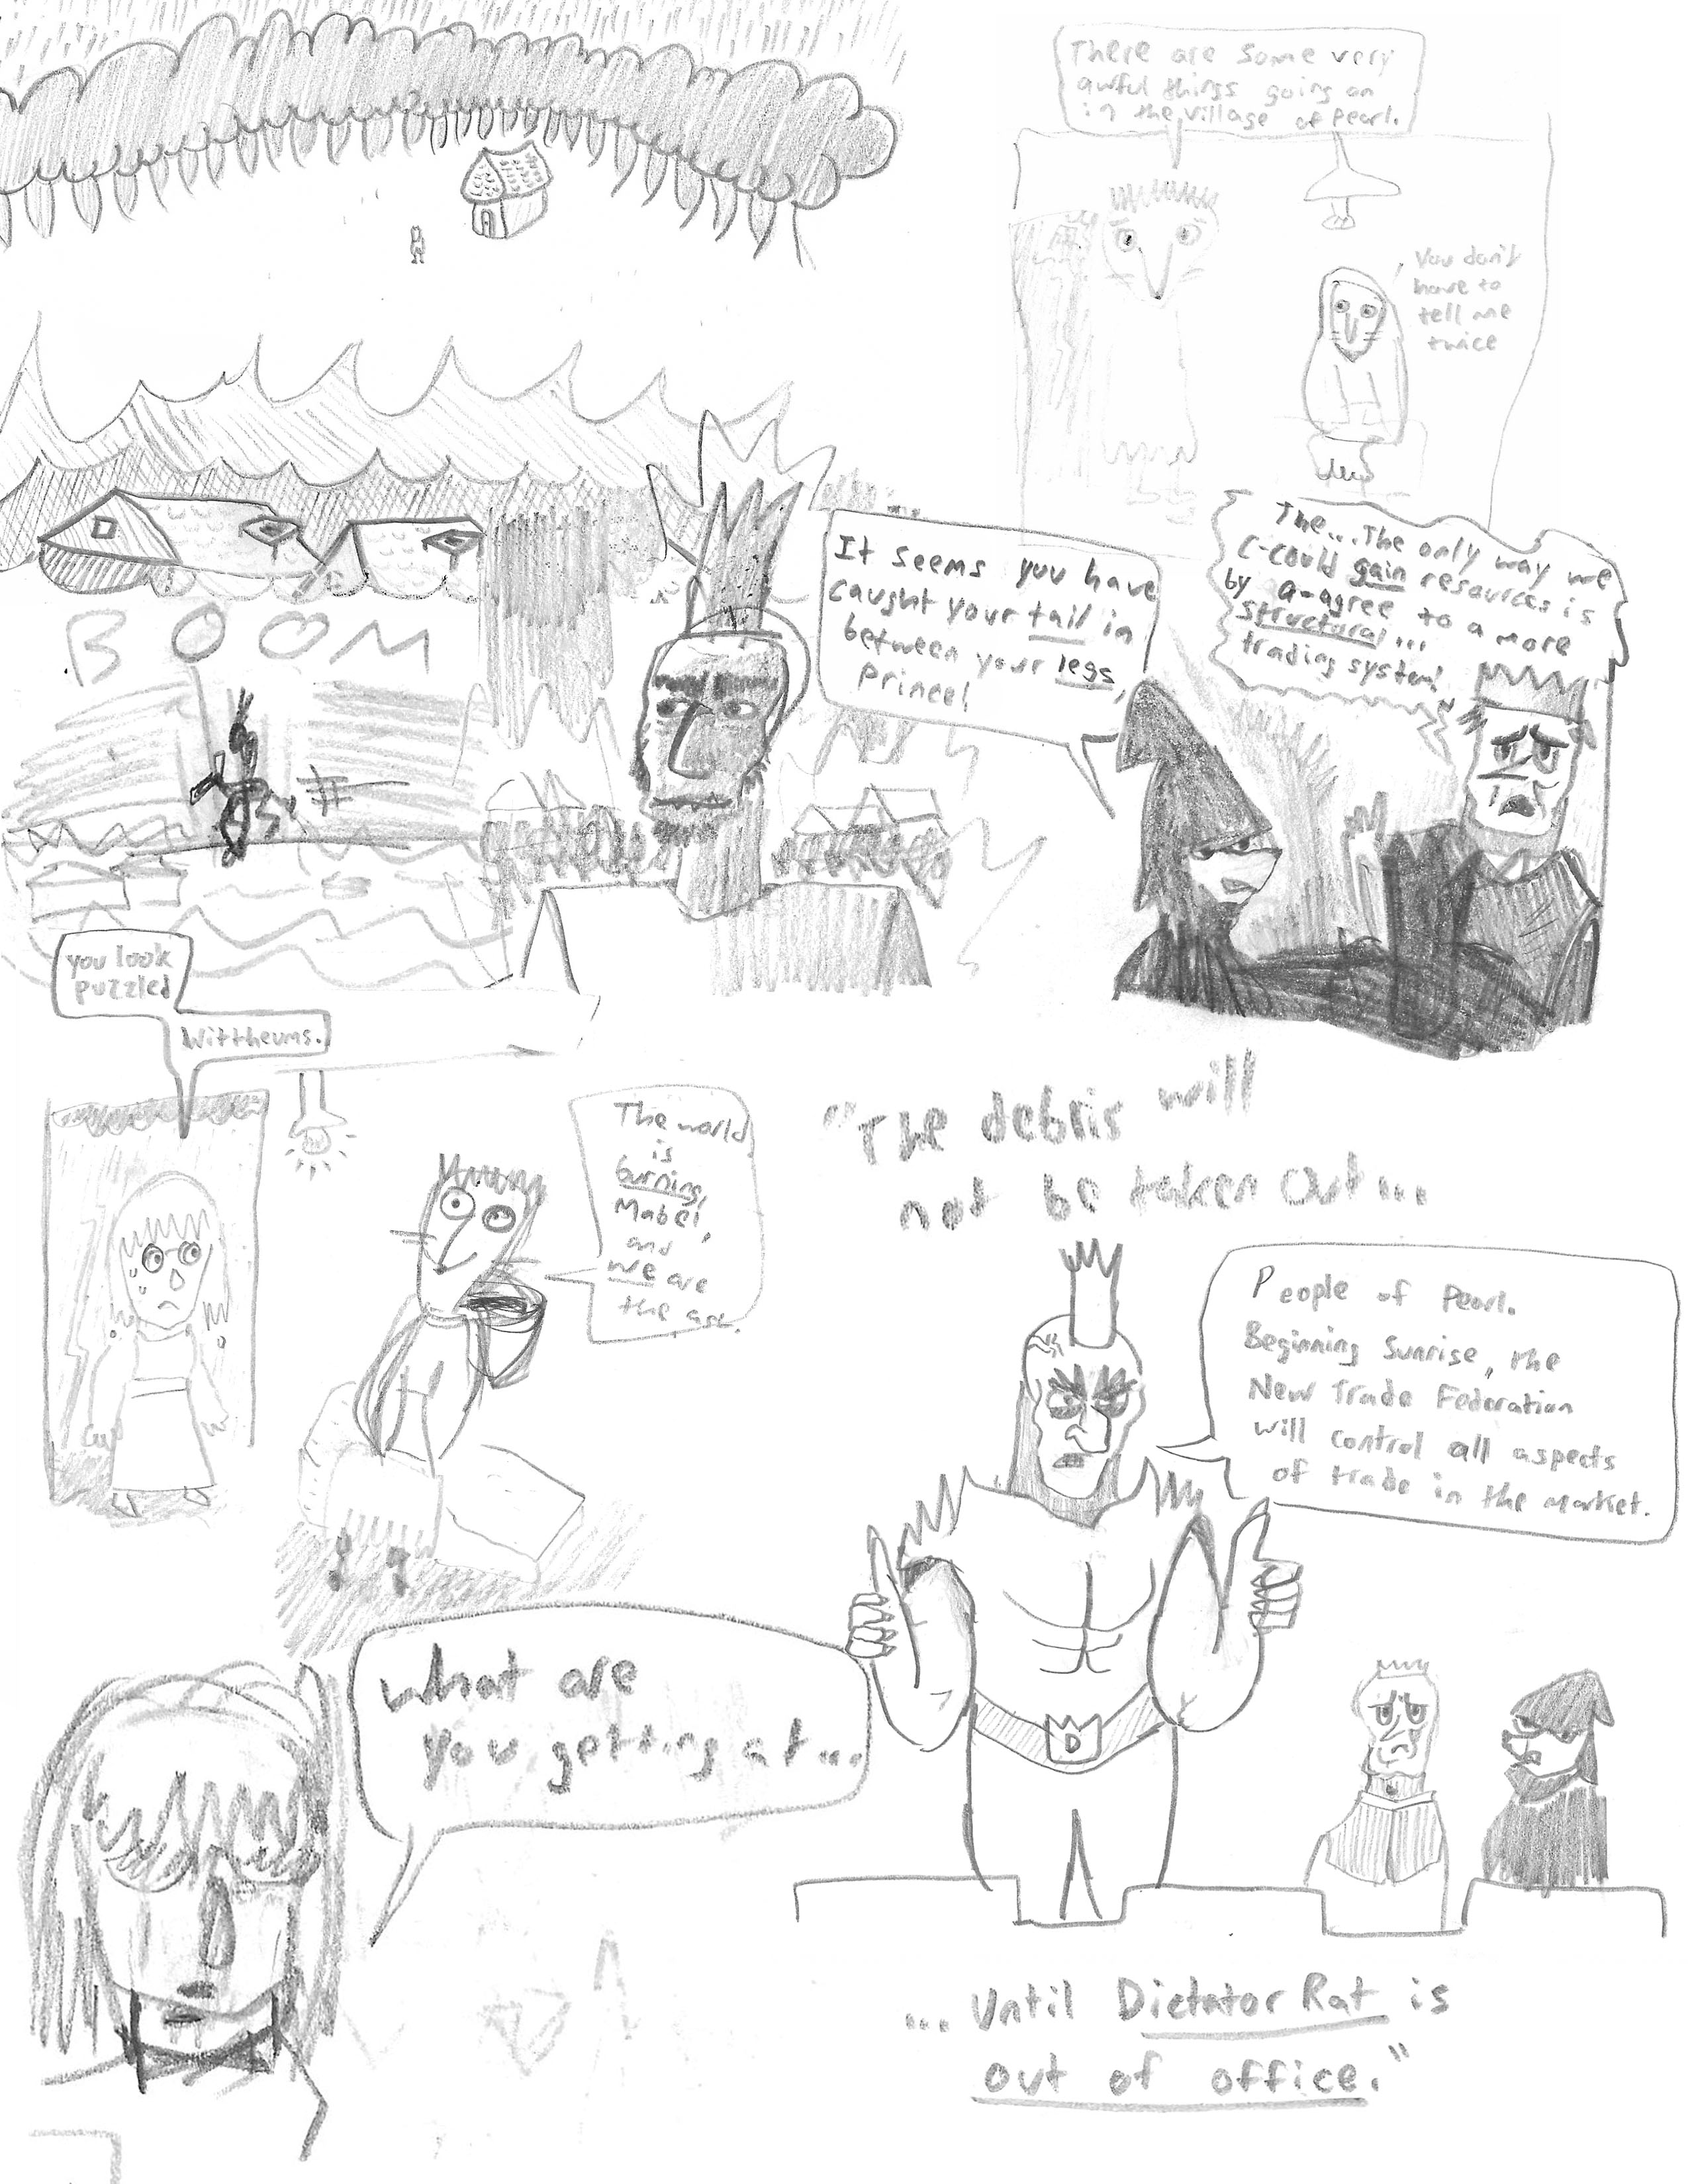 There are some very
awful things going on
in the village of Pearl.
You don't
have to
tell me
twice
BOOM
It seems you have
caught your tail in
between your legs,
Prince!
The...The only way we
c-could gain resources is
by a-agree to a more
structural...
trading system!
you look
puzzled
Wittheums.
The world
is
burning,
Mabel,
and
we are
the ash.
"The debris will
not be taken out...
People of Pearl.
Beginning Sunrise, the
New Trade Federation
will control all aspects
of trade in the market.
D
What are
you getting at...
...Until Dictator Rat is
out of office."